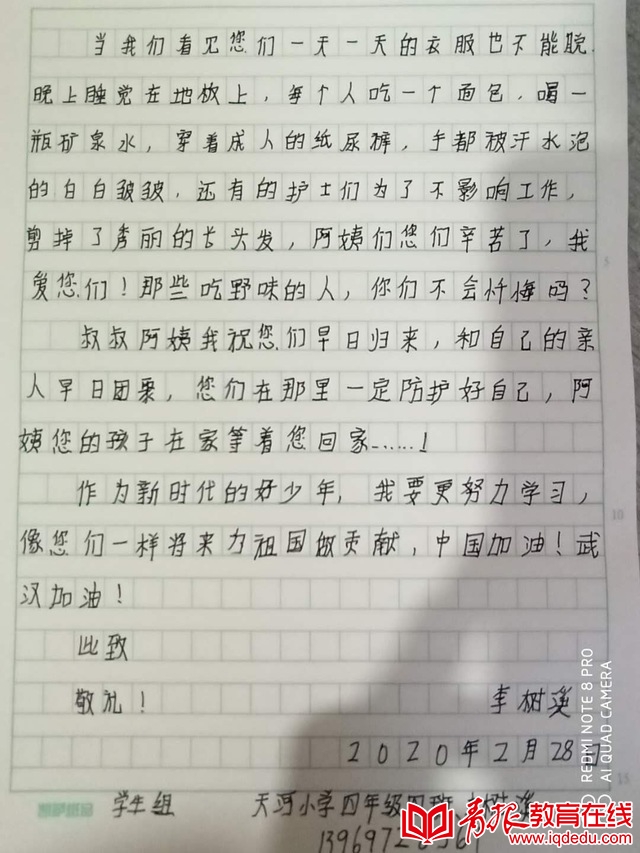 当我们看见您们一天一天的衣服也不能脱.
晚上睡觉在地板上，每个人吃一个面包，喝一
瓶矿泉水，穿着成人的纸尿裤，手都被汗水泡
的白白皱皱，还有的护士们为了不影响工作，
剪掉了秀丽的长头发，阿姨们您们辛苦了，我
爱您们！那些吃野味的人，你们不会忏悔吗？
叔叔阿姨我祝您们早日归来，和自己的亲
人早日团聚，您们在那里一定防护好自己，阿
姨您的孩子在家等着您回家……！
作为新时代的好少年，我要更努力学习，
像您们一样将来力祖国做贡献，中国加油！武
汉加油！
此致
敬礼！ 李树
2020年2月28日
学生组 天河小学四年级四班
139697
5
10
15
REDMI NOTE 8 PRO
AI QUAD CAMERA
青报教育在线
www.iqdedu.com